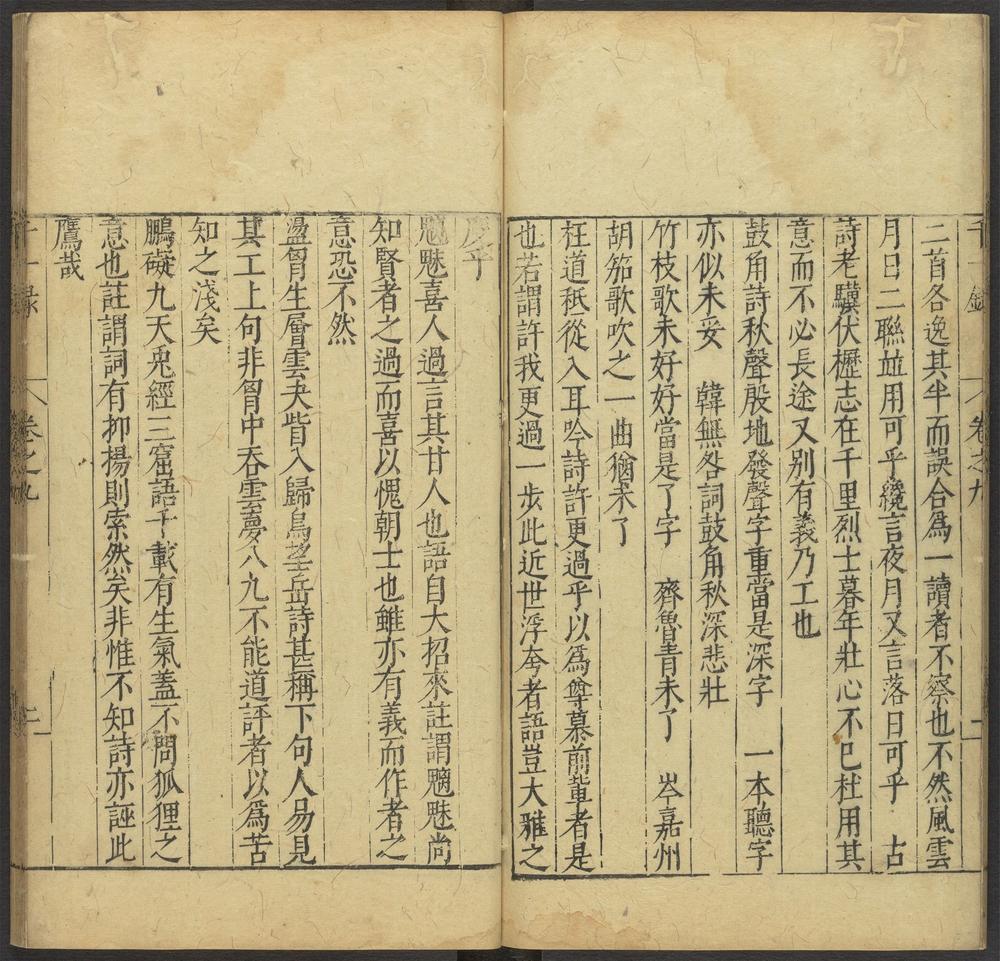 千一錄 卷之九 二
二首各逸其半而誤合為一讀者不察也不然風雲
月日二聯並用可乎纔言夜月又言落日可乎 古
詩老驥伏櫪志在千里烈士暮年壯心不已杜用其
意而不必長途又别有義乃工也
鼓角詩秋聲殷地發聲字重當是深字 一本聽字
亦似未妥 韓無咎詞鼓角秋深悲壯
竹枝歌未好好當是了字 齊魯青未了 岑嘉州
胡笳歌吹之一曲猶未了
枉道秪從入耳吟詩許更過乎以為尊慕前輩者是
也若謂許我更過一步此近世浮夸者語豈大雅之
度乎
魑魅喜人過言其甘人也語自大招來註謂魑魅尚
知賢者之過而喜以愧朝士也雖亦有義而作者之
意恐不然
盪胷生層雲决眥入歸鳥望岳詩甚稱下句人易見
其工上句非胷中吞雲夢八九不能道評者以為苦
知之淺矣
鵬礙九天兎經三窟語千載有生氣蓋不問狐狸之
意也註謂詞有抑揚則索然矣非惟不知詩亦誣此
鷹哉
千一錄 卷之九 二